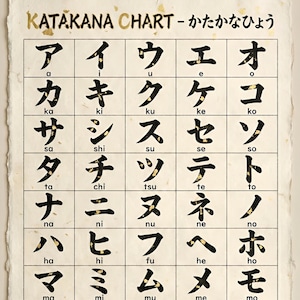 KATAKANA CHART – かたかなひょう
ア イ ウ エ オ
a i u e o
カ キ ク ケ コ
ka ki ku ke ko
サ シ ス セ ソ
sa shi su se so
タ チ ツ テ ト
ta chi tsu te to
ナ ニ ヌ ネ ノ
na ni nu ne no
ハ ヒ フ ヘ ホ
ha hi fu he ho
マ ミ ム メ モ
ma mi mu me mo